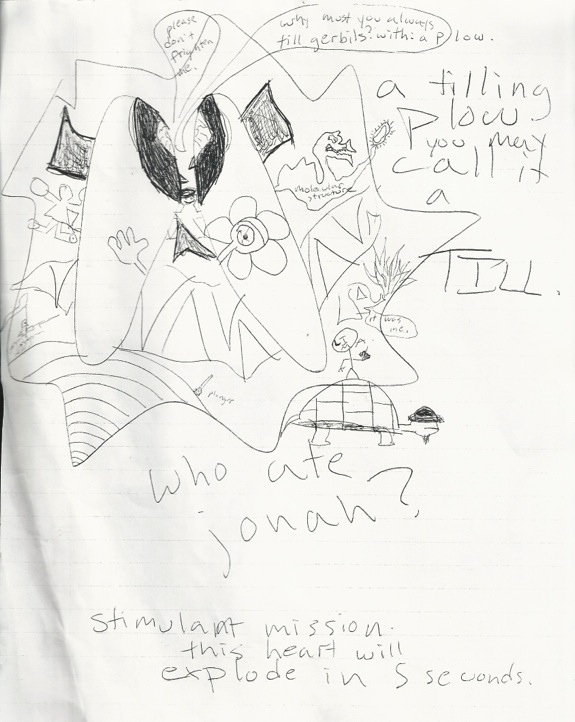 please
don't
frighten
me.
why must you always
till gerbils? with: a plow.
a tilling
plow.
you may
call it
a
TILL.
molacular
structure
it was
me.
plunger
who ate
jonah?
stimulant mission.
this heart will
explode in 5 seconds.